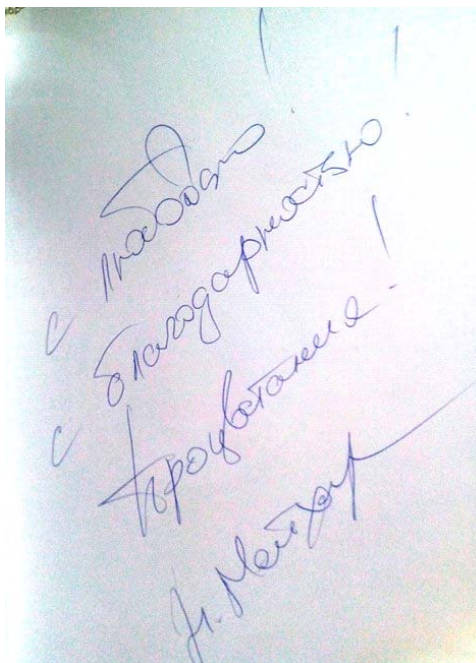 С любовью!
С благодарностью!
Процветания!